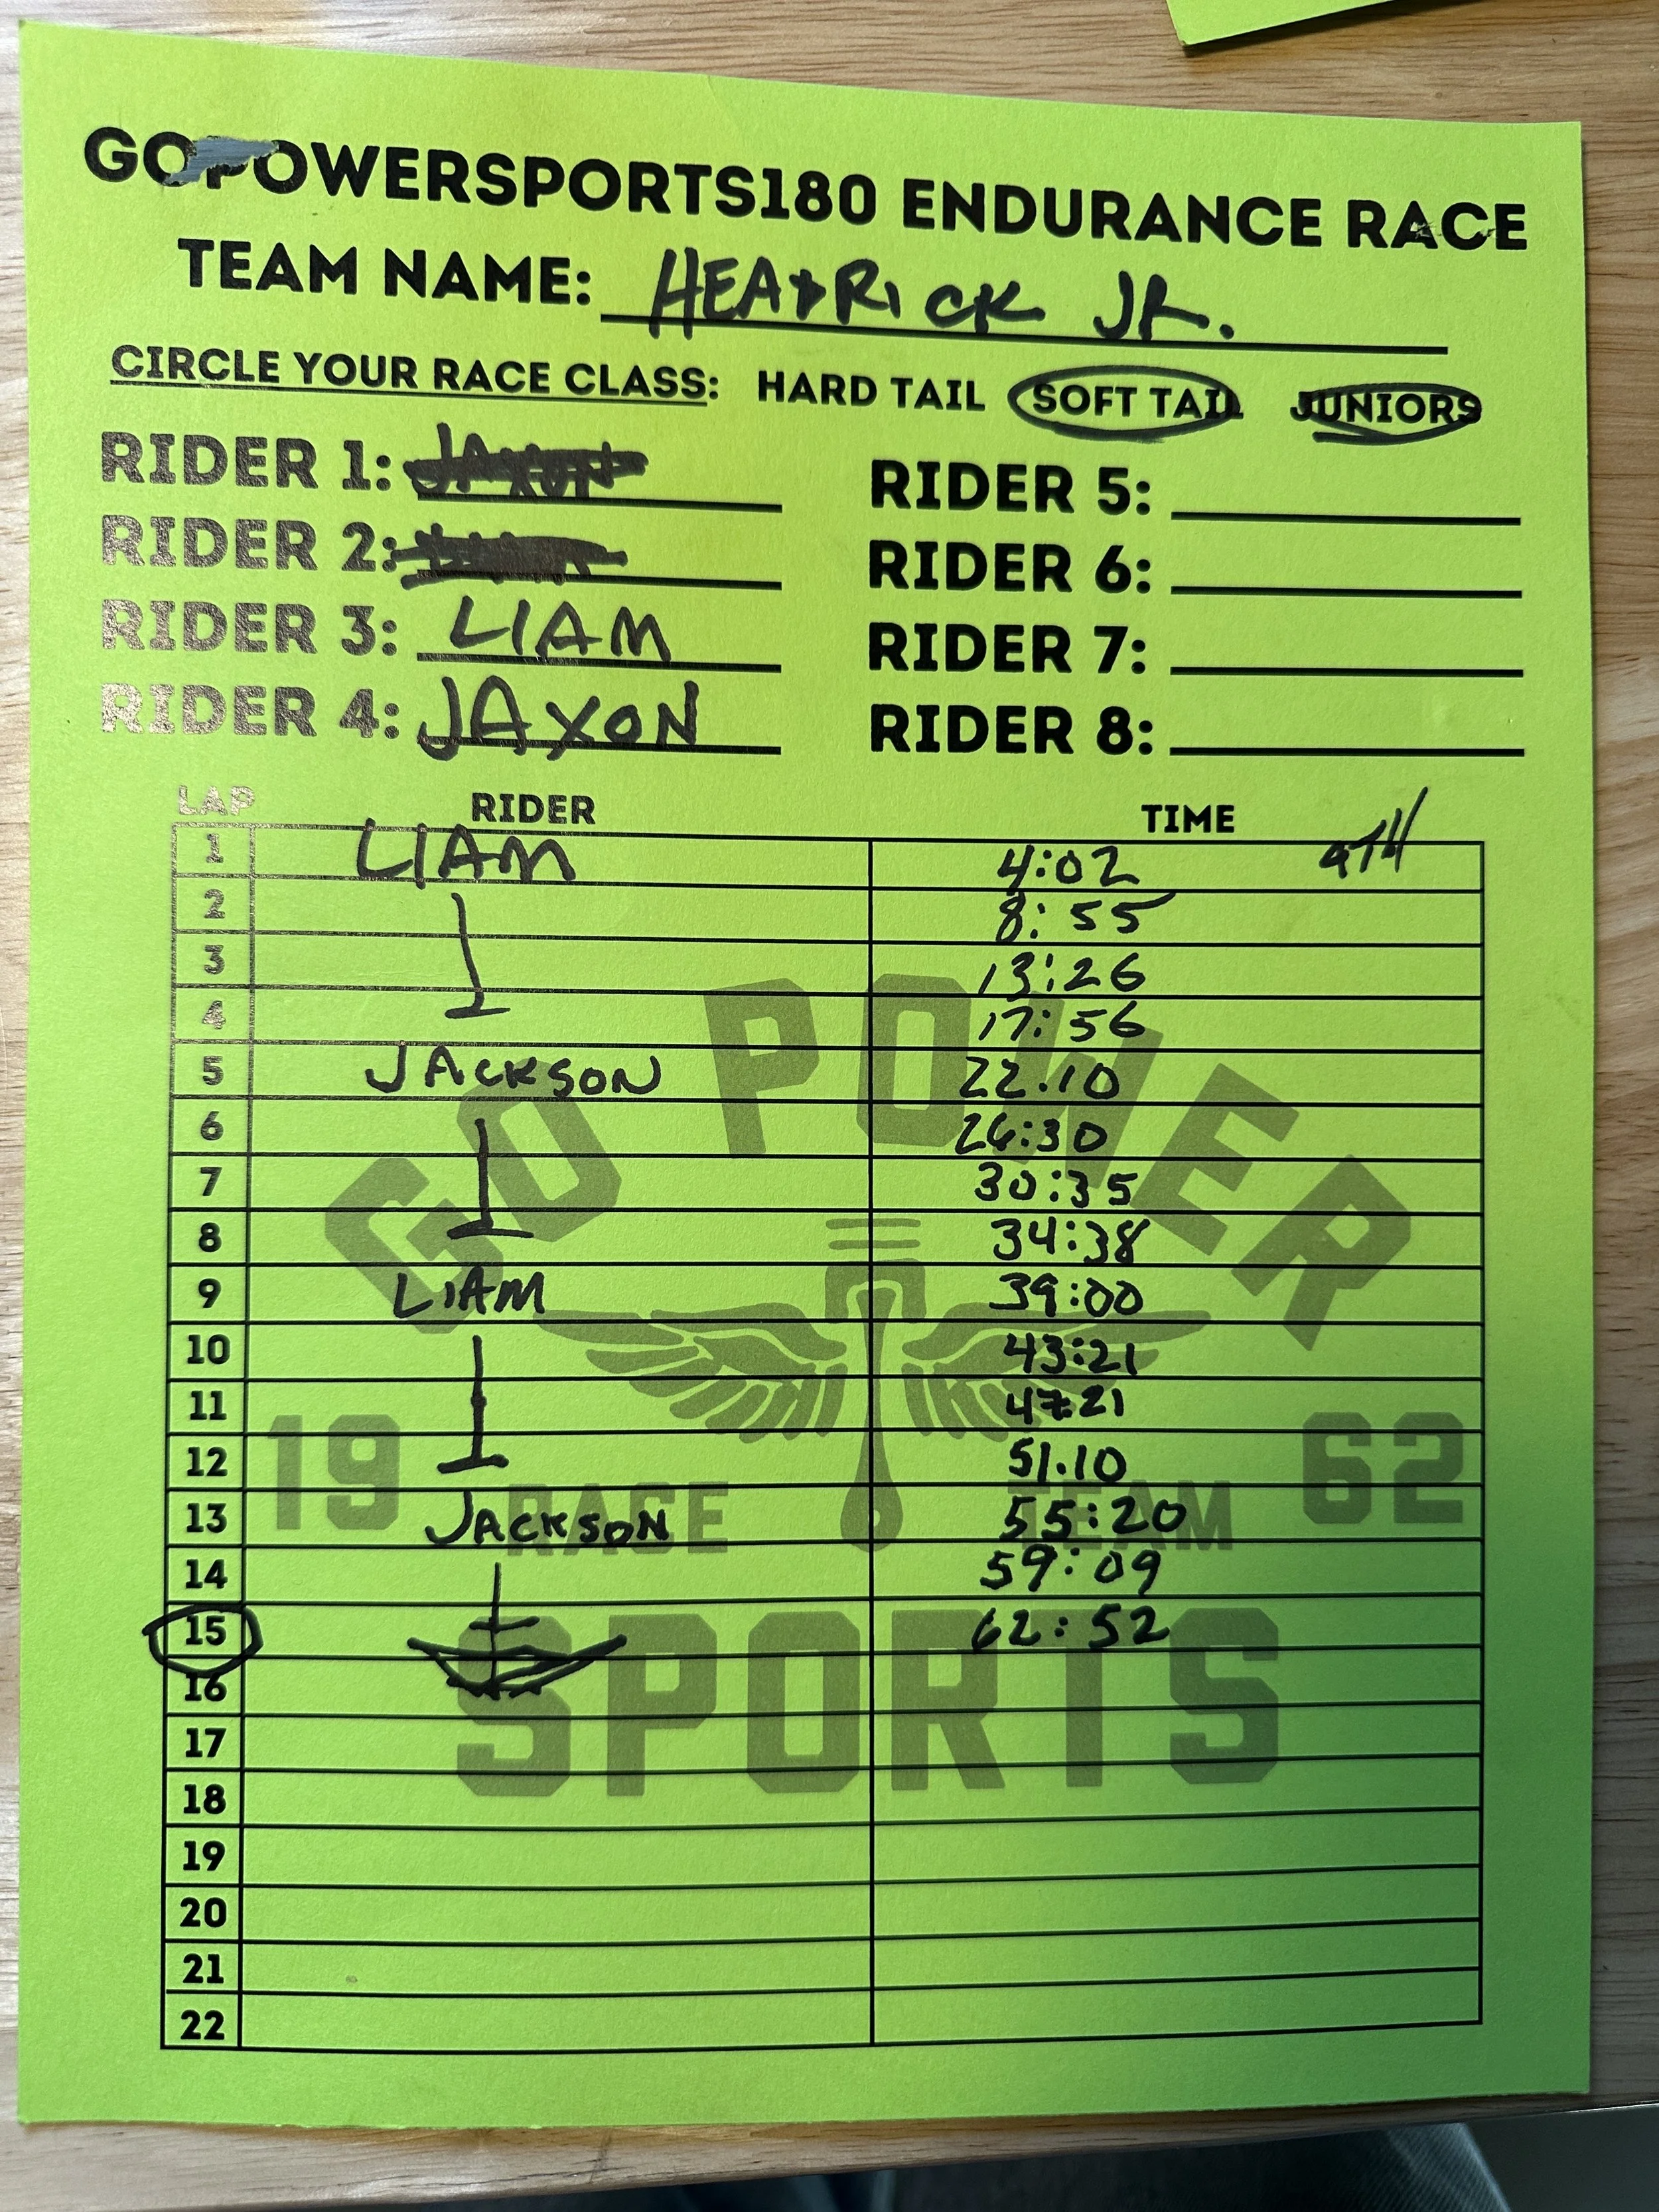 GOPOWERSPORTS180 ENDURANCE RACE
TEAM NAME: HEADRICK JR.
CIRCLE YOUR RACE CLASS: HARD TAIL SOFT TAIL JUNIORS
RIDER 1: JAXON RIDER 5:
RIDER 2: RIDER 6:
RIDER 3: LIAM RIDER 7:
RIDER 4: JAXON RIDER 8:
LAP RIDER TIME
1 LIAM 4:02 9TH
2 8:55
3 13:26
4 17:56
5 JACKSON 22.10
6 26:30
7 30:35
8 34:38
9 LIAM 39:00
10 43:21
11 47:21
12 51.10
13 JACKSON 55:20
14 59:09
15 62:52
16
17
18
19
20
21
22
GO POWER
19 62
RACE TEAM
SPORTS